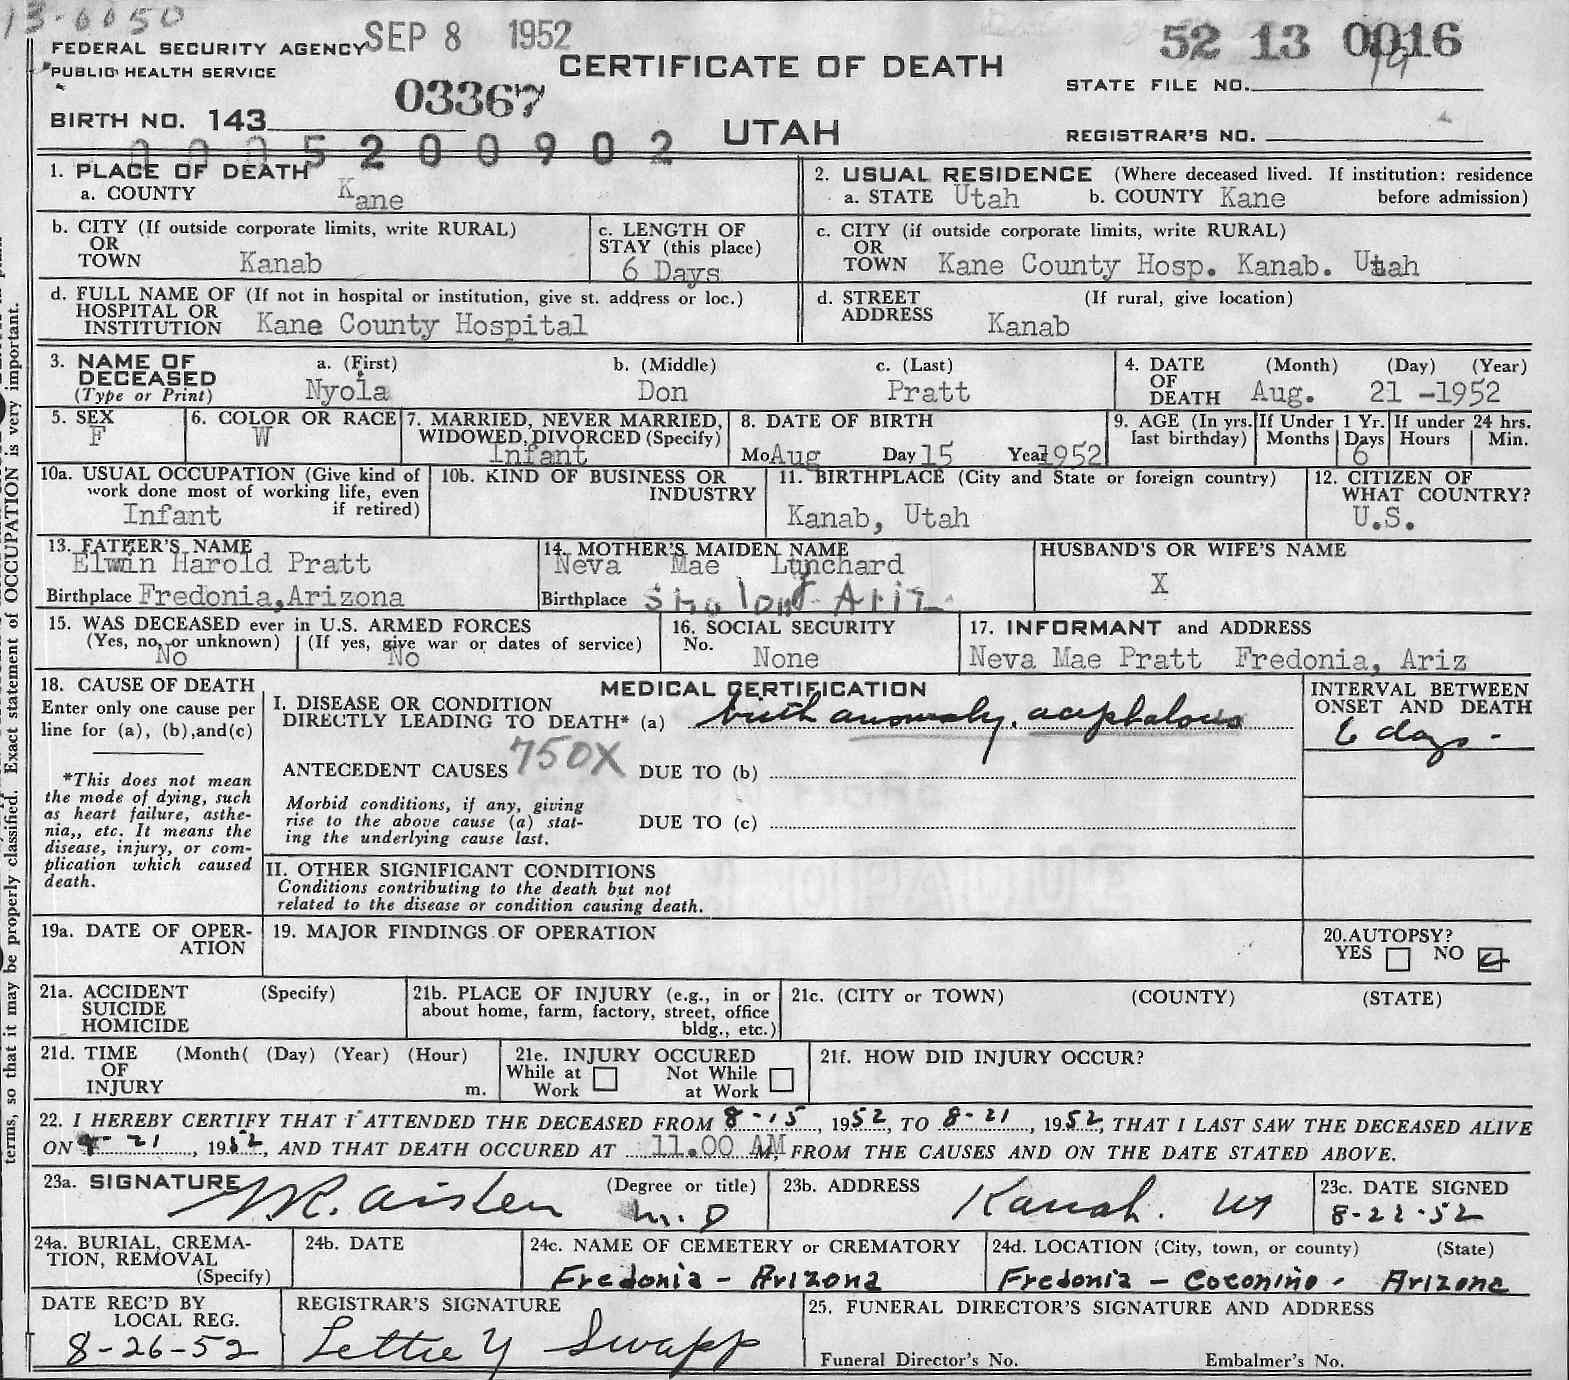 13-0050
FEDERAL SECURITY AGENCY SEP 8 1952
PUBLIC HEALTH SERVICE
CERTIFICATE OF DEATH
52 13 0016
19
STATE FILE NO.
BIRTH NO. 143 03367
UTAH
REGISTRAR'S NO.
0005200902
1. PLACE OF DEATH
a. COUNTY Kane
2. USUAL RESIDENCE (Where deceased lived. If institution: residence before admission)
a. STATE Utah b. COUNTY Kane
b. CITY (If outside corporate limits, write RURAL)
OR
TOWN Kanab
c. LENGTH OF
STAY (this place)
6 Days
c. CITY (if outside corporate limits, write RURAL)
OR
TOWN Kane County Hosp. Kanab. Utah
d. FULL NAME OF (If not in hospital or institution, give st. address or loc.)
HOSPITAL OR
INSTITUTION Kane County Hospital
d. STREET (If rural, give location)
ADDRESS Kanab
3. NAME OF DECEASED
(Type or Print)
a. (First) b. (Middle) c. (Last)
Nyola Don Pratt
4. DATE OF DEATH (Month) (Day) (Year)
Aug. 21 -1952
5. SEX
F
6. COLOR OR RACE
W
7. MARRIED, NEVER MARRIED,
WIDOWED, DIVORCED (Specify)
Infant
8. DATE OF BIRTH
Mo Aug Day 15 Year 1952
9. AGE (In yrs. last birthday)
If Under 1 Yr. If under 24 hrs.
Months Days Hours Min.
6
10a. USUAL OCCUPATION (Give kind of
work done most of working life, even
if retired)
Infant
10b. KIND OF BUSINESS OR
INDUSTRY
11. BIRTHPLACE (City and State or foreign country)
Kanab, Utah
12. CITIZEN OF
WHAT COUNTRY?
U.S.
13. FATHER'S NAME
Elwin Harold Pratt
Birthplace Fredonia,Arizona
14. MOTHER'S MAIDEN NAME
Neva Mae
Birthplace Ariz
HUSBAND'S OR WIFE'S NAME
X
15. WAS DECEASED ever in U.S. ARMED FORCES
(Yes, no, or unknown) (If yes, give war or dates of service)
No No
16. SOCIAL SECURITY
No.
None
17. INFORMANT and ADDRESS
Neva Mae Pratt Fredonia, Ariz
18. CAUSE OF DEATH
Enter only one cause per
line for (a), (b),and(c)
*This does not mean
the mode of dying, such
as heart failure, asthe-
nia,, etc. It means the
disease, injury, or com-
plication which caused
death.
MEDICAL CERTIFICATION
I. DISEASE OR CONDITION
DIRECTLY LEADING TO DEATH* (a) birth anomaly, acephalous
750X
ANTECEDENT CAUSES DUE TO (b)
Morbid conditions, if any, giving
rise to the above cause (a) stat-
ing the underlying cause last.
DUE TO (c)
II. OTHER SIGNIFICANT CONDITIONS
Conditions contributing to the death but not
related to the disease or condition causing death.
INTERVAL BETWEEN
ONSET AND DEATH
6 days -
19a. DATE OF OPER-
ATION
19. MAJOR FINDINGS OF OPERATION
20.AUTOPSY?
YES NO
21a. ACCIDENT (Specify)
SUICIDE
HOMICIDE
21b. PLACE OF INJURY (e.g., in or
about home, farm, factory, street, office
bldg., etc.)
21c. (CITY or TOWN) (COUNTY) (STATE)
21d. TIME (Month( (Day) (Year) (Hour)
OF
INJURY m.
21e. INJURY OCCURED
While at Work Not While at Work
21f. HOW DID INJURY OCCUR?
22. I HEREBY CERTIFY THAT I ATTENDED THE DECEASED FROM 8-15, 1952, TO 8-21, 1952, THAT I LAST SAW THE DECEASED ALIVE
ON 8-21, 1952, AND THAT DEATH OCCURED AT 11.00 AM M, FROM THE CAUSES AND ON THE DATE STATED ABOVE.
23a. SIGNATURE (Degree or title)
R. Aiken M.D
23b. ADDRESS
Kanab. Ut
23c. DATE SIGNED
8-22-52
24a. BURIAL, CREMA-
TION, REMOVAL
(Specify)
24b. DATE
24c. NAME OF CEMETERY or CREMATORY
Fredonia - Arizona
24d. LOCATION (City, town, or county) (State)
Fredonia - Coconino - Arizona
DATE REC'D BY
LOCAL REG.
8-26-52
REGISTRAR'S SIGNATURE
Lettie Y Swapp
25. FUNERAL DIRECTOR'S SIGNATURE AND ADDRESS
Funeral Director's No. Embalmer's No.
terms, so that it may be properly classified. Exact statement of OCCUPATION is very important.